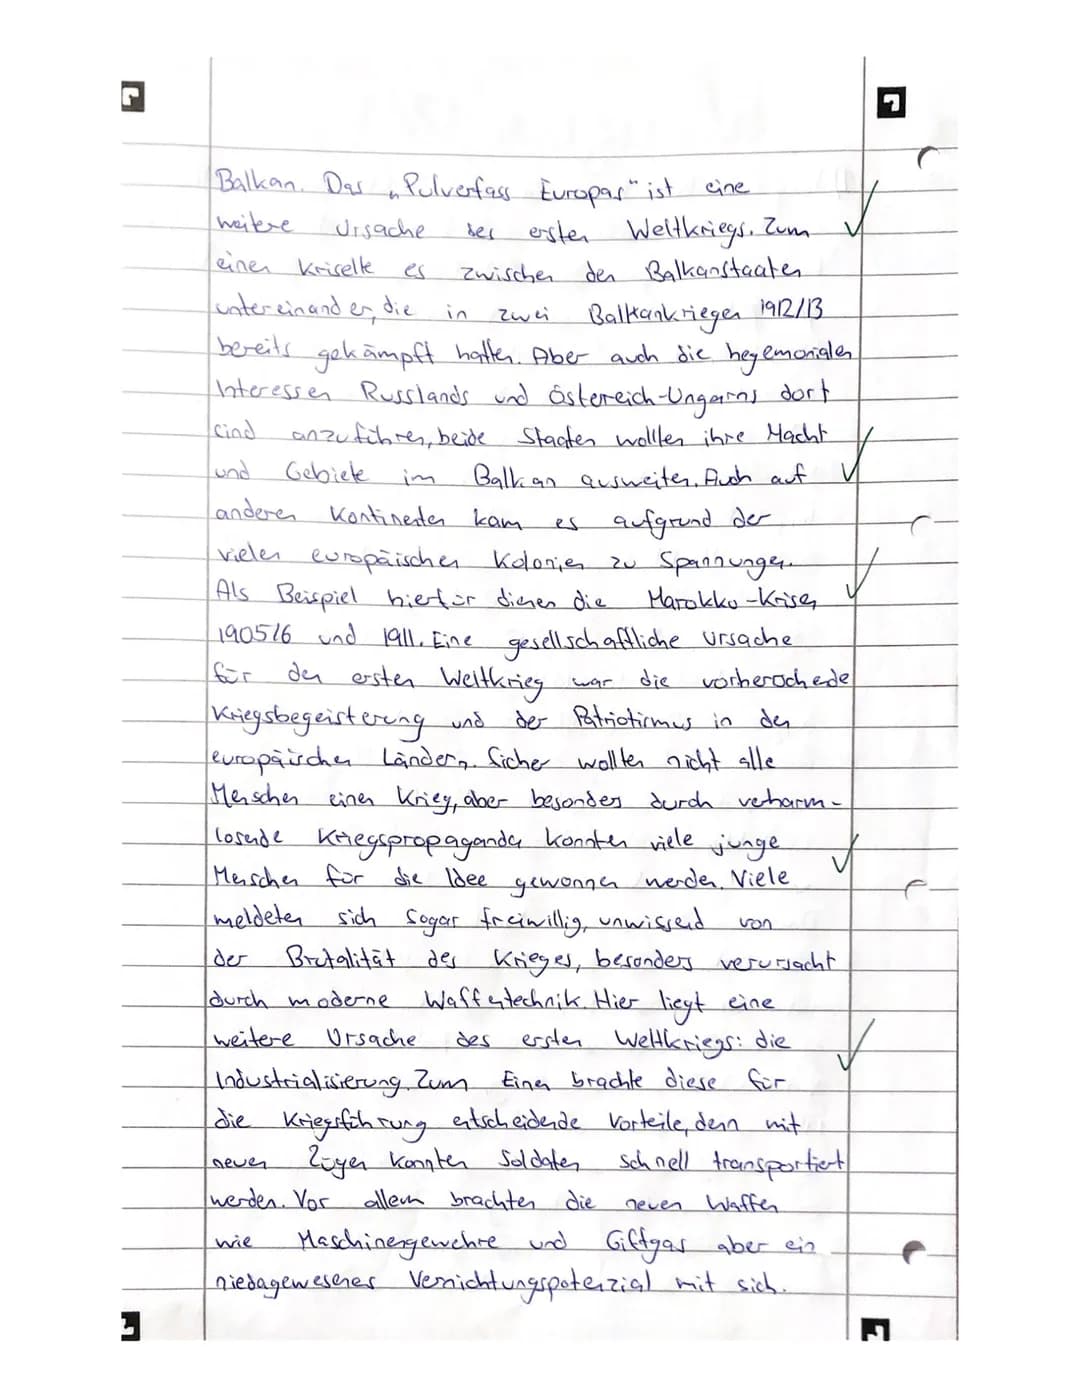 Balkan. Das „Pulverfass Europas" ist eine
weitere Ursache des ersten Weltkriegs. Zum
einen kriselte es zwischen den Balkanstaaten
untereinander, die in zwei Balkankriegen 1912/13
bereits gekämpft hatten. Aber auch die hegemonialen
Interessen Russlands und Östereich-Ungarns dort
sind anzuführen, beide Staaten wollten ihre Macht
und Gebiete im Balkan ausweiten. Auch auf
anderen Kontinenten kam es aufgrund der
vielen europäischen Kolonien zu Spannungen.
Als Beispiel hierfür dienen die Marokko-Krisen
1905/6 und 1911. Eine gesellschaftliche Ursache
für den ersten Weltkrieg war die
Kriegsbegeisterung und der Patriotismus in den
europäischen Ländern. Sicher wollten nicht alle
Menschen einen Krieg, aber besonders durch verharm-
losende Kriegspropaganda konnten viele junge
Menschen für die Idee gewonnen werden. Viele
meldeten sich sogar freiwillig, unwissend von
der Brutalität des Krieges, besonders verursacht
durch moderne Waffentechnik. Hier liegt eine
weitere Ursache des ersten Weltkriegs: die
Industrialisierung. Zum Einen brachte diese für
die Kriegsführung entscheidende Vorteile, denn mit
neuen Zügen konnten Soldaten schnell transportiert
werden. Vor allem brachten die neuen Waffen
wie Maschinengewehre und Giftgas aber ein
niedagewesenes Vernichtungspotenzial mit sich.